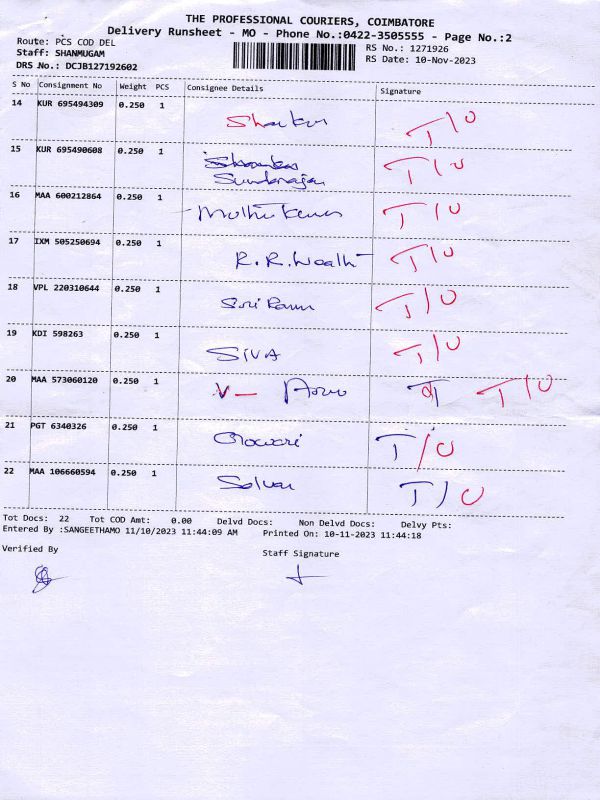 THE PROFESSIONAL COURIERS, COIMBATORE
Delivery Runsheet - MO - Phone No.:0422-3505555 - Page No.:2
Route: PCS COD DEL
RS No.: 1271926
Staff: SHANMUGAM
RS Date: 10-Nov-2023
DRS No.: DCJB127192602
S No Consignment No Weight PCS Consignee Details Signature
14 KUR 695494309 0.250 1 T/U
15 KUR 695490608 0.250 1 T/U
16 MAA 600212864 0.250 1 T/U
17 IXM 505250694 0.250 1 R.R.Wealth T/U
18 VPL 220310644 0.250 1 Sri Ram T/U
19 KDI 598263 0.250 1 SIVA T/U
20 MAA 573060120 0.250 1 T/U
21 PGT 6340326 0.250 1 T/U
22 MAA 106660594 0.250 1 T/U
Tot Docs: 22 Tot COD Amt: 0.00 Delvd Docs: Non Delvd Docs: Delvy Pts:
Entered By :SANGEETHAMO 11/10/2023 11:44:09 AM Printed On: 10-11-2023 11:44:18
Verified By
Staff Signature